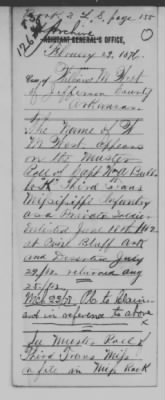 Book 2 L.S. page 155
Archive
ADJUTANT GENERAL'S OFFICE,
February 23, 1876.
Case of William M. West
of Jefferson County
Arkansas.
The Name of W
M West appears
on the Muster
Roll of Capt
Co K Third Trans
Mississippi Infantry
as a Private Soldier
Enlisted June 10th 1862
at Pine Bluff Ark
and Deserted July
29/62. returned Aug
25/62.
and in reference to above
x
See Muster Roll
Third Trans Miss
on file in Miss Rack